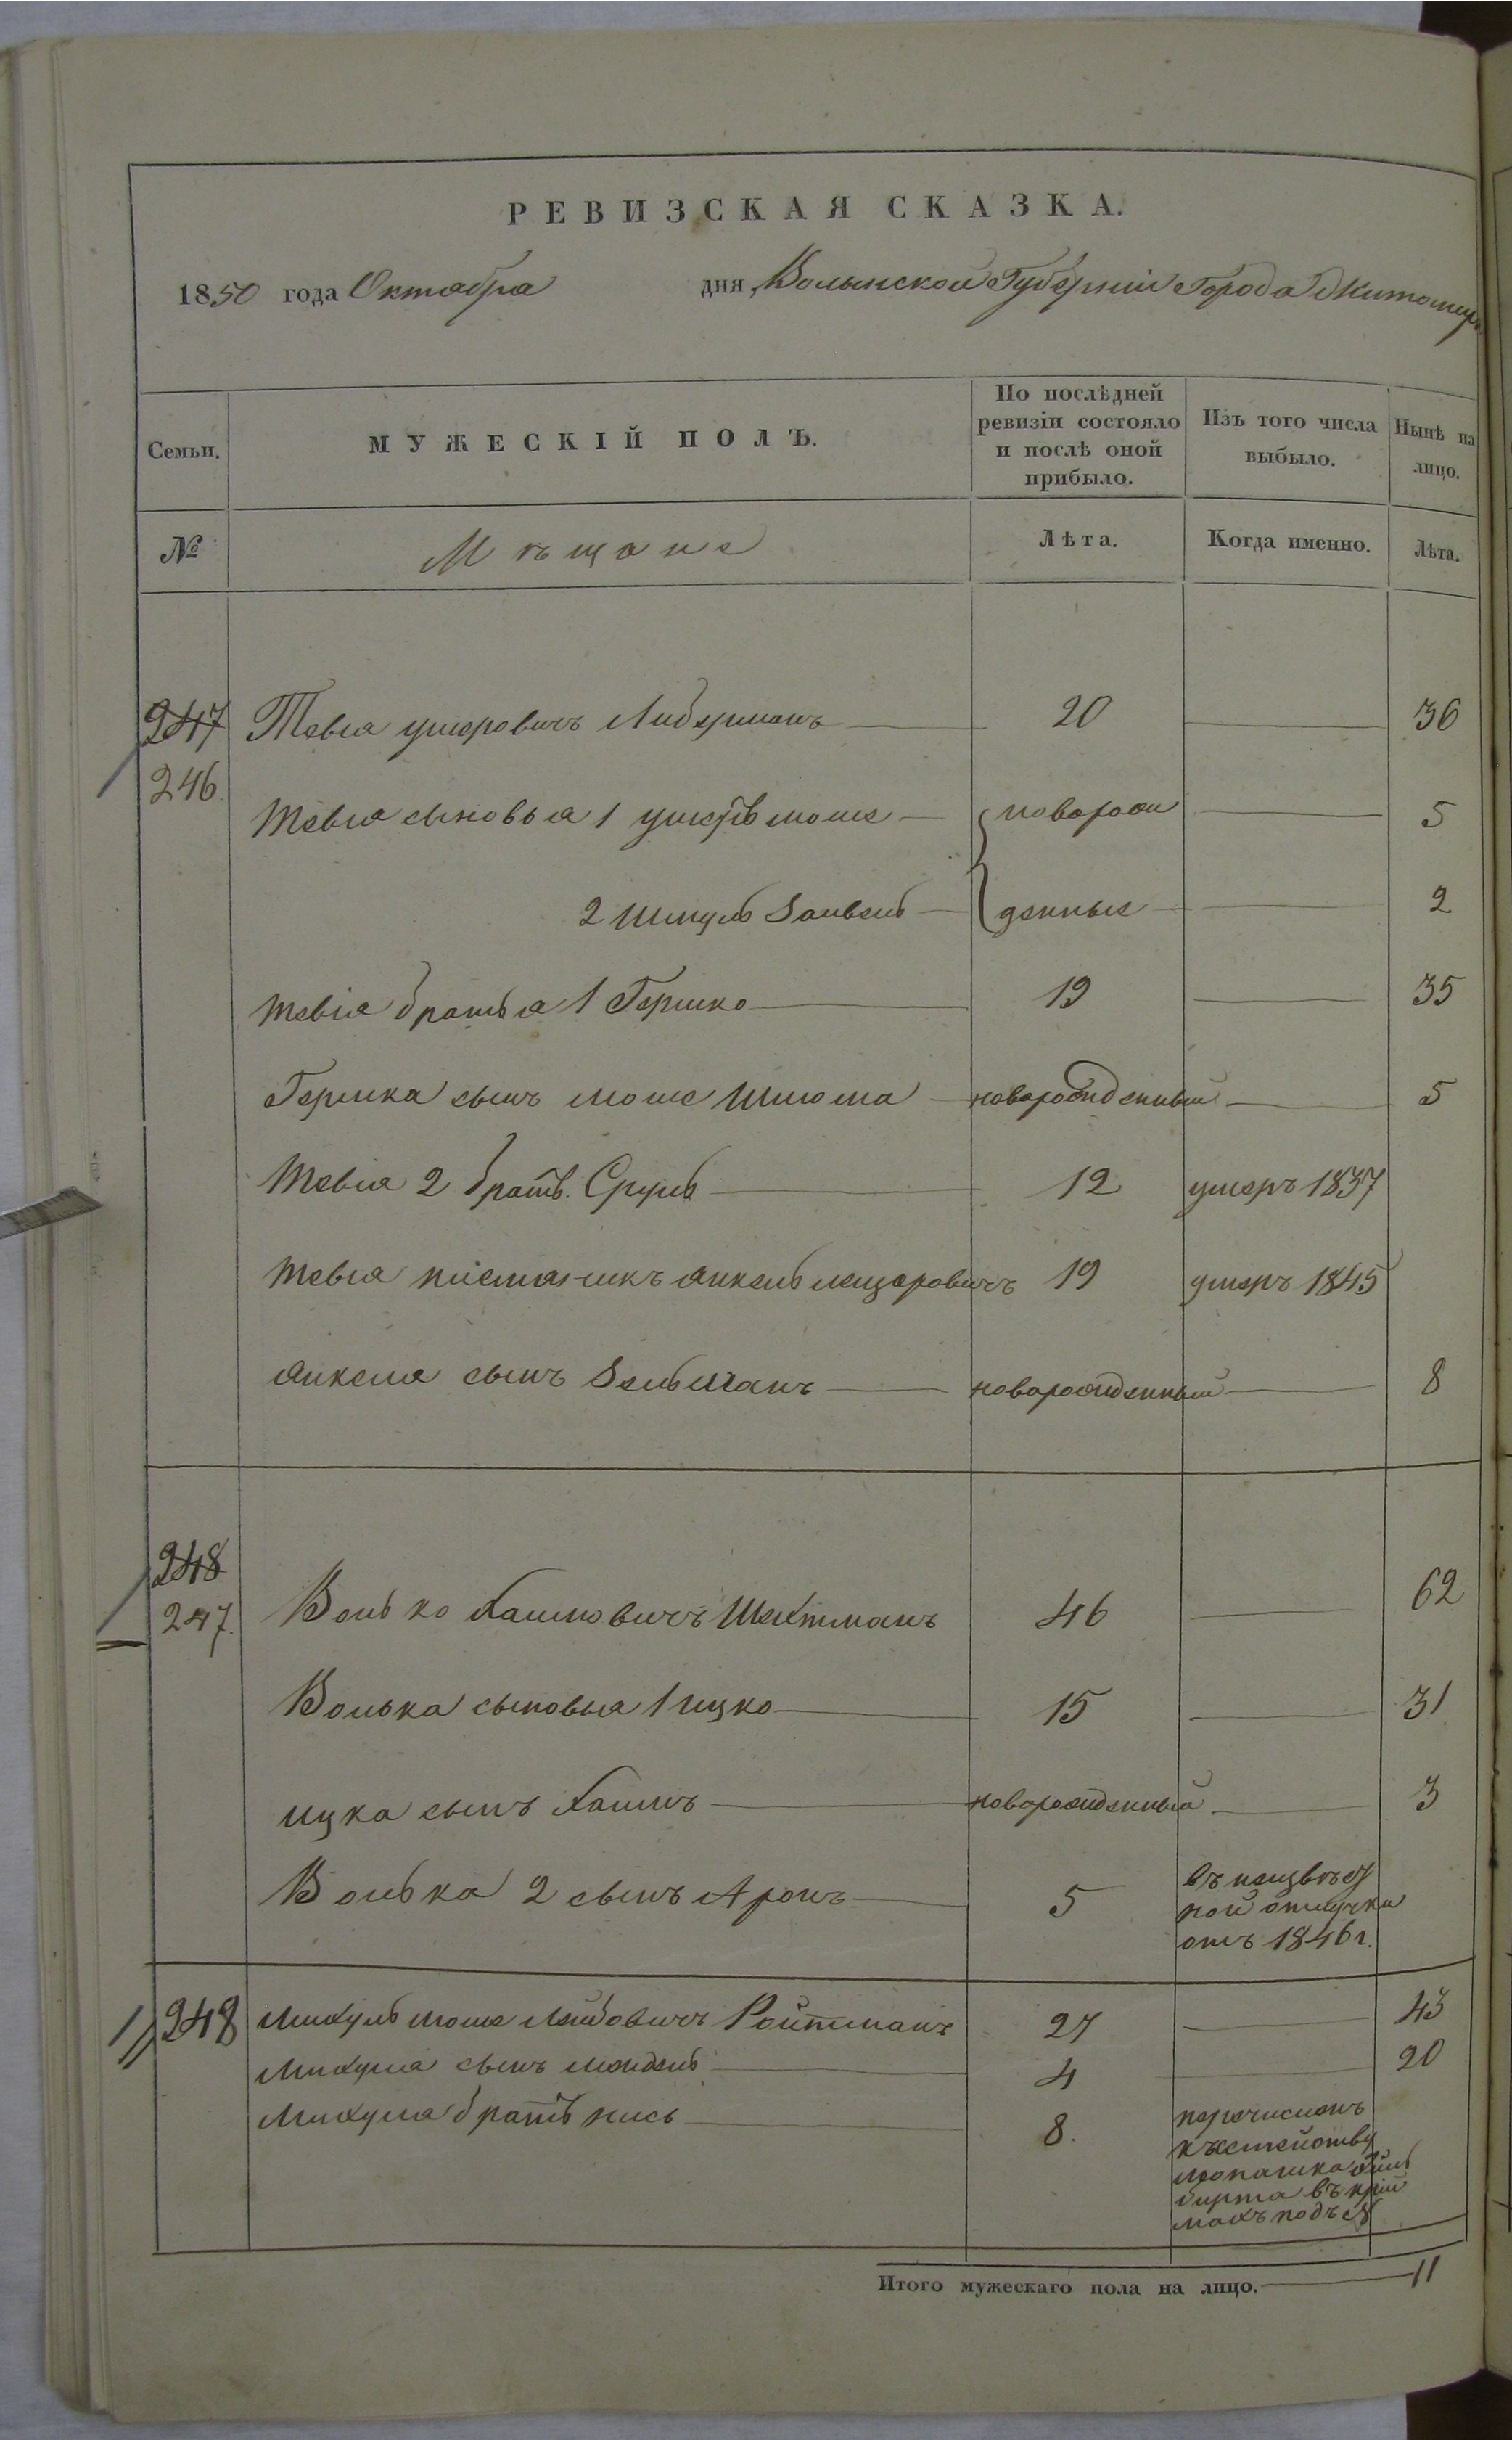 РЕВИЗСКАЯ СКАЗКА.
1850 года Октабра дня, Волынской Губерніи Города Житомира
Семьи. МУЖЕСКІЙ ПОЛЪ. По послѣдней ревизіи состояло и послѣ оной прибыло. Изъ того числа выбыло. Нынѣ на лицо.
№ Мѣщане Лѣта. Когда именно. Лѣта.
247 Тевіа ушеровичъ Либерманъ 20 36
246
Тевіа сыновья 1 ушеръ моше новорож 5
2 Шмуль Занвель денные 2
тевіа братья 1 Гершко 19 35
Гершка сынъ моше Шлиома новорожденный 5
Тевіа 2 братъ. Сруль 12 умеръ 1837
тевіа племяникъ Янкель лейзеровичъ 19 умеръ 1845
Янкеля сынъ Зельманъ новорожденный 8
248
247. Волько Хаимовичъ Шехтманъ 46 62
Волька сыновья 1 ицко 15 31
ицка сынъ Хаимъ новорожденный 3
Волька 2 сынъ Аронъ 5 въ неизвѣст
ной отлучки
отъ 1846 г.
248 Михуль моше Лейбовичъ Ройтманъ 27 43
Михуля сынъ мендель 4 20
Михуля братъ нись 8. перечисленъ
къ семейству
въ
подъ №
Итого мужескаго пола на лицо. 11